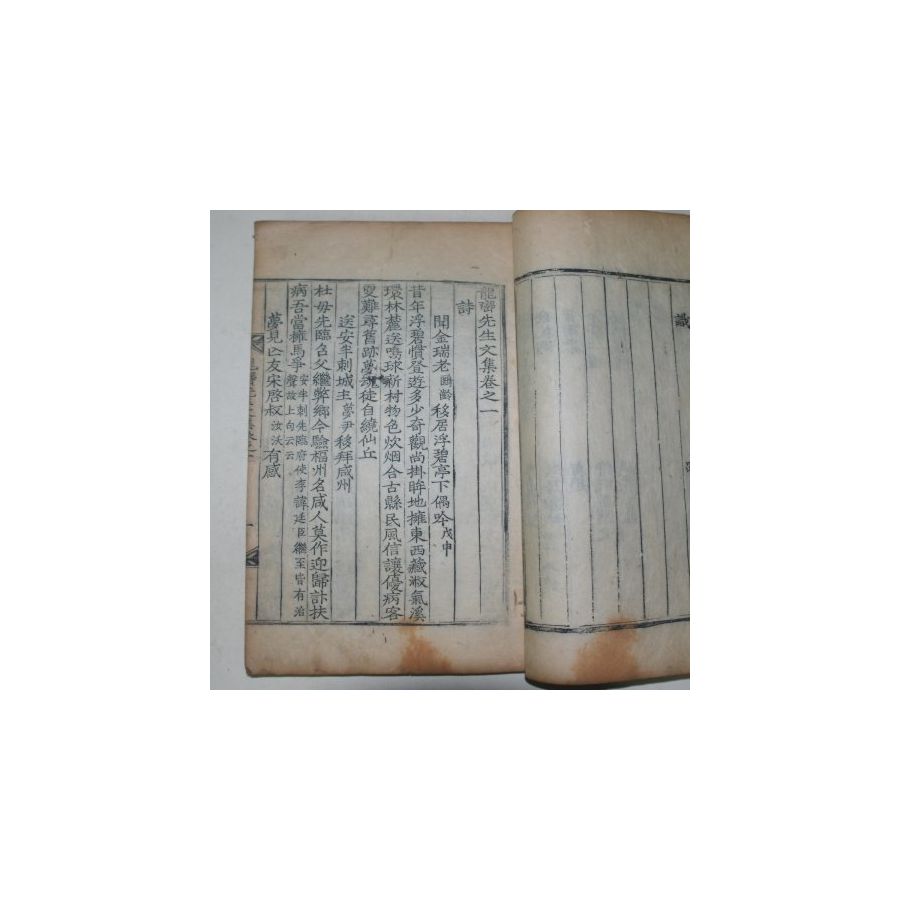 識
龍巒先生文集卷之一
詩
聞金瑞老移居浮碧亭下偶吟戊申
昔年浮碧慣登遊多少奇觀尚掛眸地擁東西藏淑氣溪
環林麓送鳴球新村物色炊烟合古縣民風信讓優病客
夏難尋舊跡夢魂徒自繞仙丘
送安半刺城主夢尹移拜咸州
杜母先臨召父繼弊鄉今驗福州名咸人莫作迎歸計扶
病吾當擁馬爭安半刺先臨府使李諱廷臣繼至皆有治聲故上句云云
夢見亡友宋啓叔汝沃有感